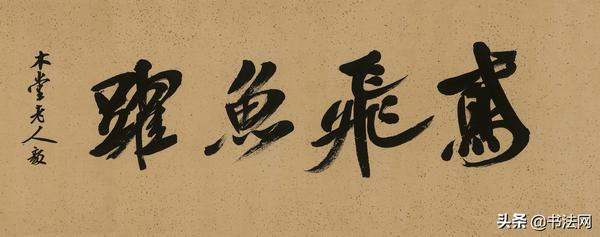 鳶飛魚躍
木堂老人毅
头条 @书法网